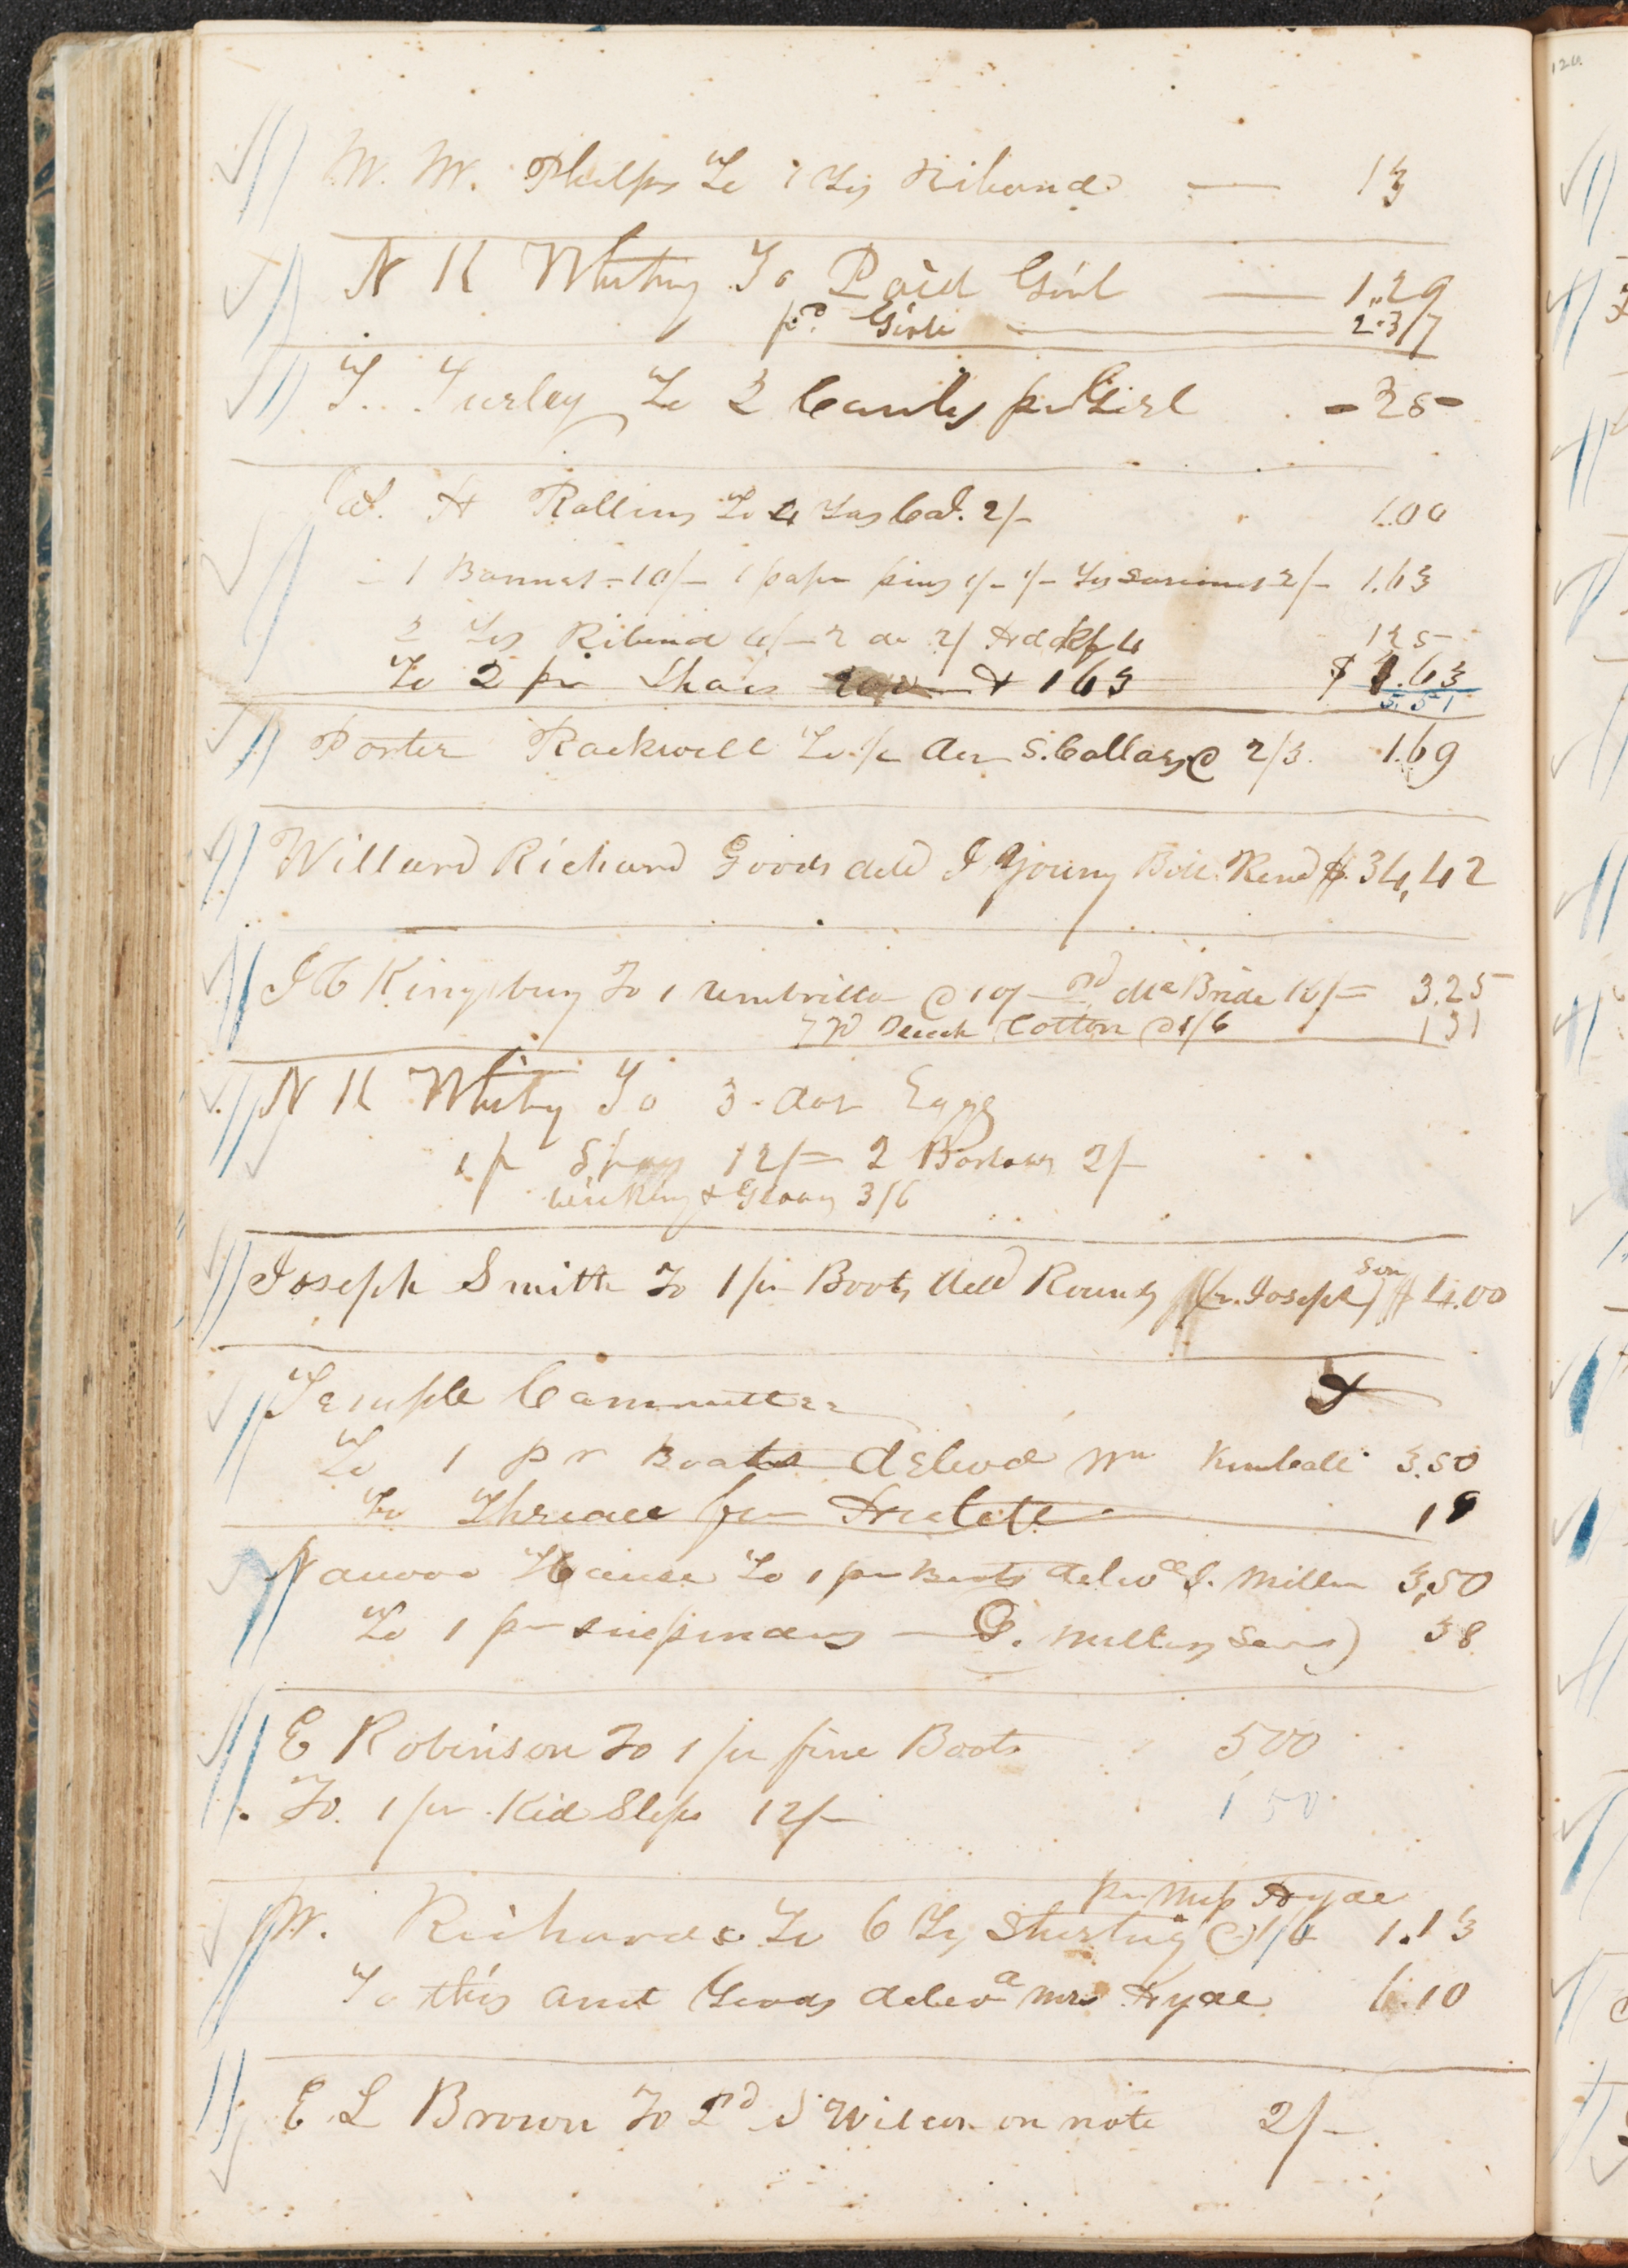 W. W. Phelps To Yds Riband — 13
N K Whitney To Paid Girl — 1.29
pd. Girls — 2.37
T. Turley To 2 Combs pr Girl - 25 -
H Rollins To 4 Yds Cal. 2/- 1.00
1 Bonnet - 10/- 1 paper pins 1/- Yds 2/- 1.63
2 Yds Riband 4/- 2 do 2/ Hdkf 4 125
To 2 pr Shoes & 163 $ 1.63
5.51
Porter Rockwell To ½ doz S. Collars @ 2/3. 1.69
Willard Richard Goods deld J Young Bill Rend $ 34,42
J C Kingsbury To 1 umbrilla @ 10/ Pd McBride 16/= 3.25
7 yd Cotton @ 1/6 131
N K Whitney To 3 doz Eggs
1 pr 12/= 2 2/-
wicking & 3/6
Joseph Smith To 1 pr Boots deld Roundy (for Joseph son) $ 4.00
Temple Committee
To 1 pr Boots delivd Wm Kimball 3.50
To Thread for 19
Nauvoo House To 1 pr Boots delivd G. Miller 3,50
To 1 pr suspinders — G. Millers Son) 38
E Robinson To 1 pr fine Boots 500
To. 1 pr Kid Slips 12/- 1 50
pr Miss Hyde
W. Richards To 6 Yds Shirting @ 1/6 1.13
To this amt Goods delevd Mrs Hyde 6.10
E L Brown To Pd S Wilcox on note 2/-
120.